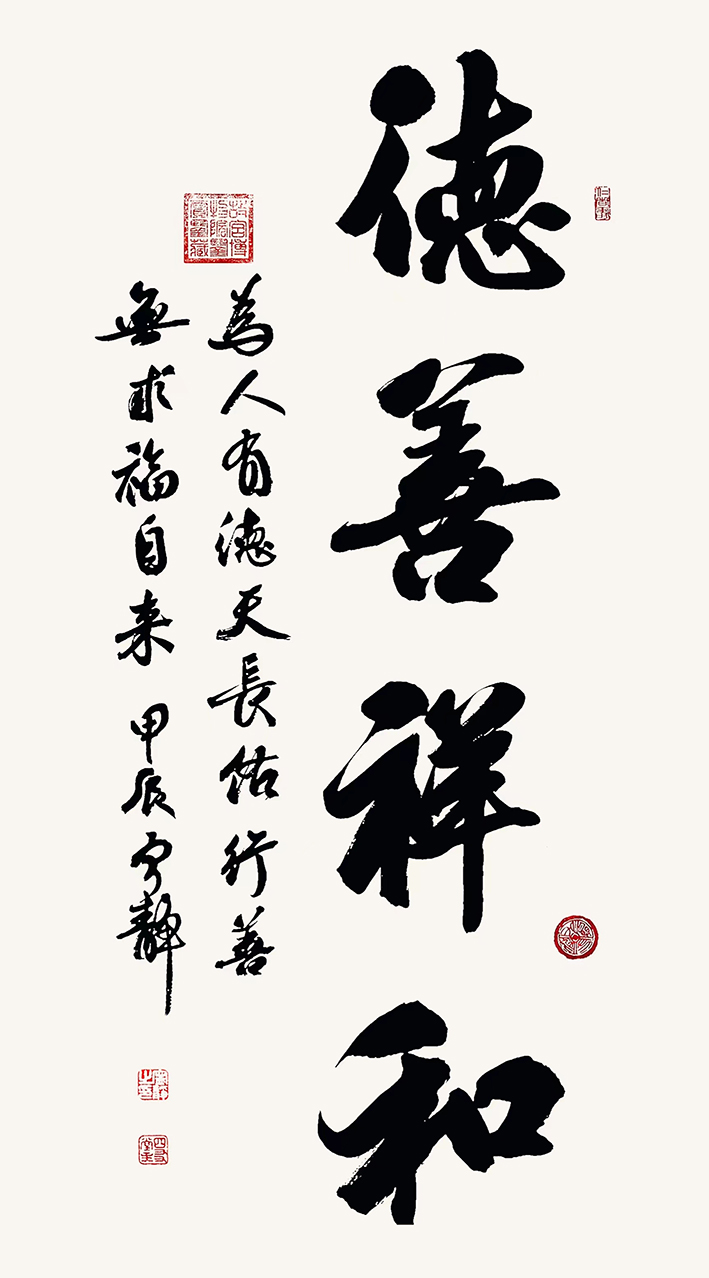 德善祥和
為人有德天長佑行善
無求福自来 甲辰 宁靜